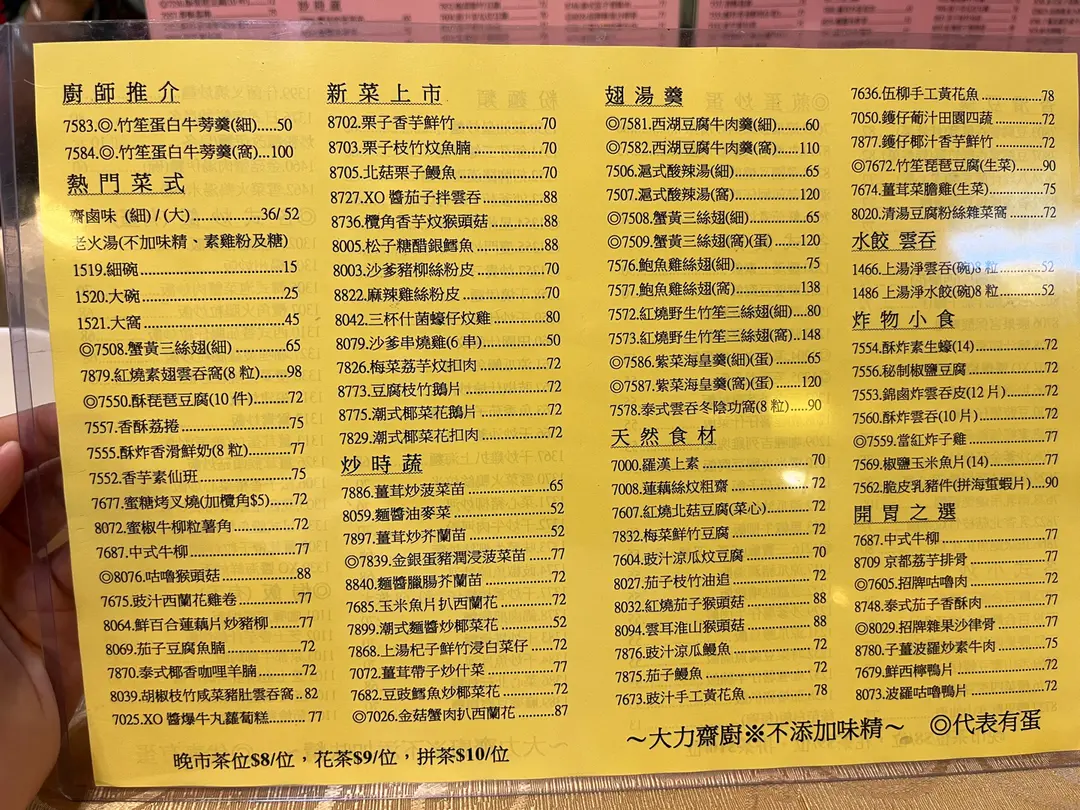 廚師推介
7583.◎.竹笙蛋白牛蒡羹(細).....50
7584.◎.竹笙蛋白牛蒡羹(窩)...100
熱門菜式
齋鹵味 (細) / (大)..............36/ 52
老火湯(不加味精、素雞粉及糖)
1519.細碗..............................15
1520.大碗..............................25
1521.大窩..............................45
◎7508.蟹黃三絲翅(細)............65
7879.紅燒素翅雲吞窩(8 粒)......98
◎7550.酥琵琶豆腐(10 件).......72
7557.香酥荔捲........................75
7555.酥炸香滑鮮奶(8 粒).........77
7552.香芋素仙班.....................75
7677.蜜糖烤叉燒(加欖角$5).....72
8072.蜜椒牛柳粒薯角..............72
7687.中式牛柳........................77
◎8076.咕嚕猴頭菇..................88
7675.豉汁西蘭花雞卷..............77
8064.鮮百合蓮藕片炒豬柳.......77
8069.茄子豆腐魚腩.................72
7870.泰式椰香咖哩羊腩...........72
8039.胡椒枝竹咸菜豬肚雲吞窩..82
7025.XO 醬爆牛丸蘿蔔糕......... 77
新菜上市
8702.栗子香芋鮮竹..................70
8703.栗子枝竹炆魚腩...............70
8705.北菇栗子鰻魚..................70
8727.XO 醬茄子拌雲吞.............88
8736.欖角香芋炆猴頭菇............88
8005.松子糖醋銀鱈魚...............88
8003.沙爹豬柳絲粉皮...............70
8822.麻辣雞絲粉皮..................70
8042.三杯什菌蠔仔炆雞............80
8079.沙爹串燒雞(6 串).............50
7826.梅菜荔芋炆扣肉...............72
8773.豆腐枝竹鵝片..................72
8775.潮式椰菜花鵝片...............72
7829.潮式椰菜花扣肉...............72
炒時蔬
7886.薑茸炒菠菜苗..................65
8059.麵醬油麥菜.....................52
7897.薑茸炒芥蘭苗..................52
◎7839.金銀蛋豬潤浸菠菜苗......77
8840.麵醬臘腸芥蘭苗...............72
7685.玉米魚片扒西蘭花............72
7899.潮式麵醬炒椰菜花............52
7868.上湯杞子鮮竹浸白菜仔......72
7072.薑茸帶子炒什菜...............77
7682.豆豉鱈魚炒椰菜花............72
◎7026.金菇蟹肉扒西蘭花.........87
翅湯羹
◎7581.西湖豆腐牛肉羹(細).......60
◎7582.西湖豆腐牛肉羹(窩)......110
7506.滬式酸辣湯(細)...............65
7507.滬式酸辣湯(窩)..............120
◎7508.蟹黃三絲翅(細)............65
◎7509.蟹黃三絲翅(窩)(蛋).....120
7576.鮑魚雞絲翅(細)...............75
7577.鮑魚雞絲翅(窩)..............138
7572.紅燒野生竹笙三絲翅(細)...80
7573.紅燒野生竹笙三絲翅(窩)..148
◎7586.紫菜海皇羹(細)(蛋).......65
◎7587.紫菜海皇羹(窩)(蛋)......120
7578.泰式雲吞冬陰功窩(8 粒).....90
天然食材
7000.羅漢上素........................70
7008.蓮藕絲炆粗齋..................72
7607.紅燒北菇豆腐(菜心).........72
7832.梅菜鮮竹豆腐..................72
7604.豉汁涼瓜炆豆腐...............70
8027.茄子枝竹油追..................72
8032.紅燒茄子猴頭菇...............88
8094.雲耳淮山猴頭菇...............88
7876.豉汁涼瓜鰻魚..................72
7875.茄子鰻魚........................72
7673.豉汁手工黃花魚...............78
7636.伍柳手工黃花魚...............78
7050.鑊仔葡汁田園四蔬............72
7877.鑊仔椰汁香芋鮮竹............72
◎7672.竹笙琵琶豆腐(生菜).......90
7674.薑茸菜膽雞(生菜)............75
8020.清湯豆腐粉絲雜菜窩.........72
水餃 雲吞
1466.上湯淨雲吞(碗)8 粒.........52
1486 上湯淨水餃(碗)8 粒.........52
炸物小食
7554.酥炸素生蠔(14)...............72
7556.秘制椒鹽豆腐..................72
7553.錦鹵炸雲吞皮(12 片).........72
7560.酥炸雲吞(10 片)..............72
◎7559.當紅炸子雞..................77
7569.椒鹽玉米魚片(14)............77
7562.脆皮乳豬件(拼海蜇蝦片)...90
開胃之選
7687.中式牛柳........................77
8709 京都荔芋排骨..................77
◎7605.招牌咕嚕肉..................72
8748.泰式茄子香酥肉...............77
◎8029.招牌雜果沙律骨............77
8780.子薑波羅炒素牛肉............75
7679.鮮西檸鴨片.....................72
8073.波羅咕嚕鴨片..................72
～大力齋廚※不添加味精～ ◎代表有蛋
晚市茶位$8/位，花茶$9/位，拼茶$10/位